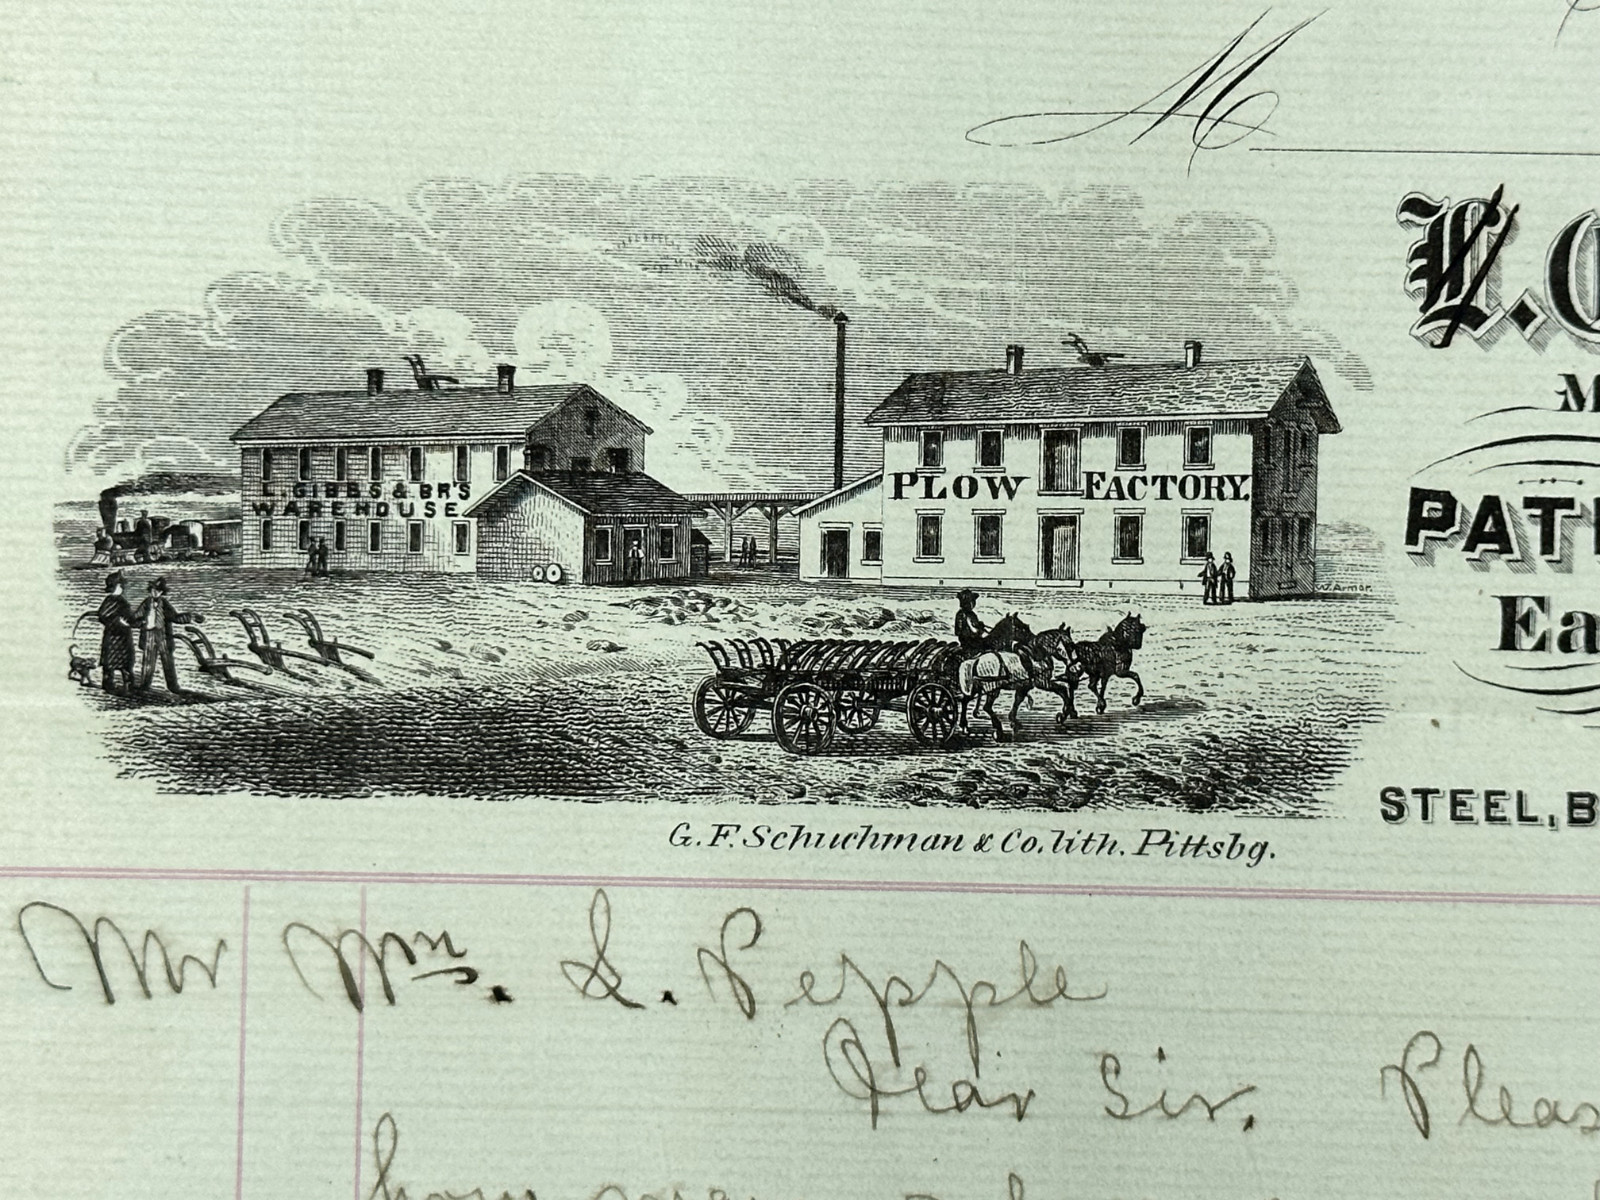 M
L. G
M
L. GIBBS & BR'S
WAREHOUSE
PLOW FACTORY.
PAT
Ea
STEEL, B
G. F. Schuchman & Co. lith. Pittsbg.
Mr Wm. L. Pepple
Dear Sir. Pleas